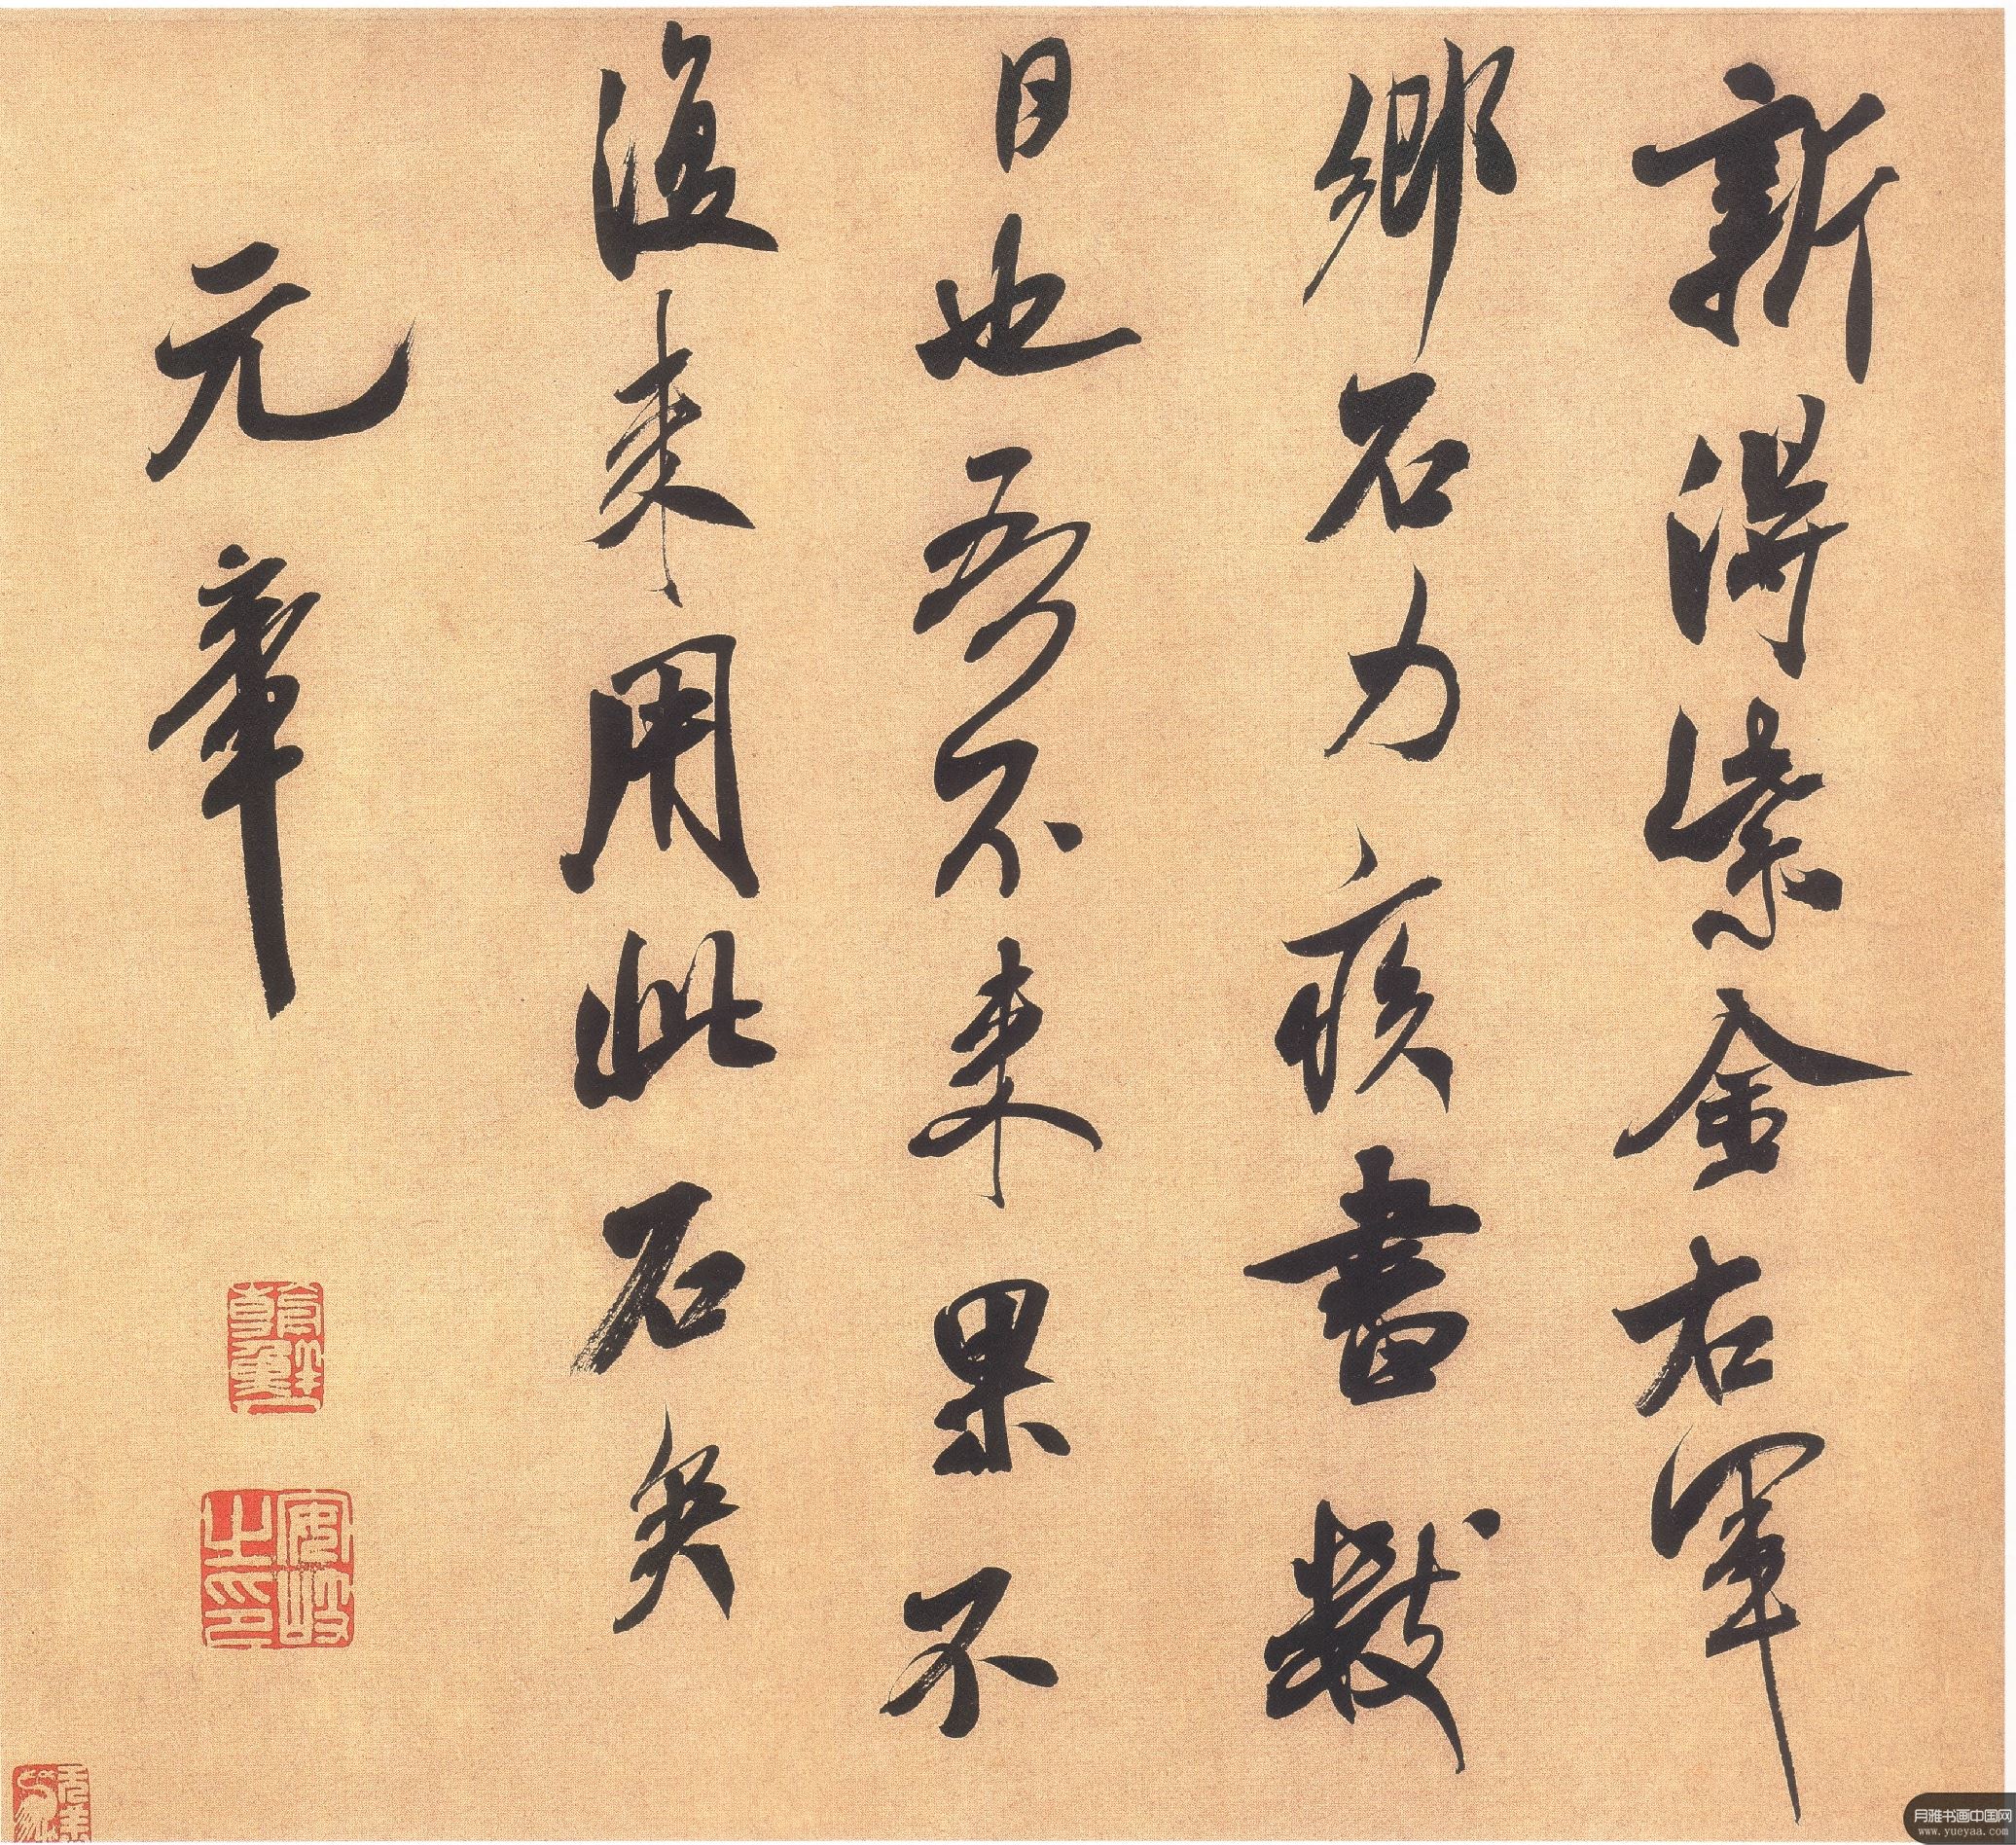 新得紫金右軍
鄉石力疾書數
日也吾不来果不
復来用此石矣
元章
安岐之印
月雅书画中国网
www.yueyaa.com